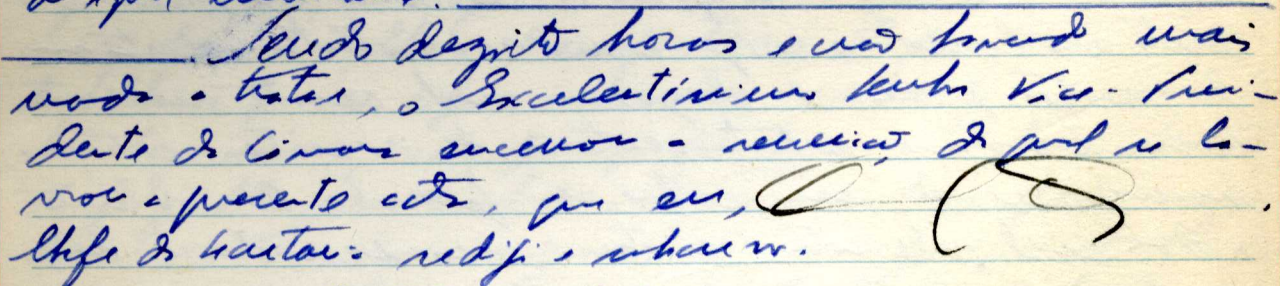 Sendo dezoito horas e não havendo mais
nada a tratar, o Excelentíssimo Senhor Vice-Presi-
dente da Câmara encerrou a reunião, da qual se la-
vrou a presente acta, que eu,
Chefe de Secretaria redigi e subscrevo.